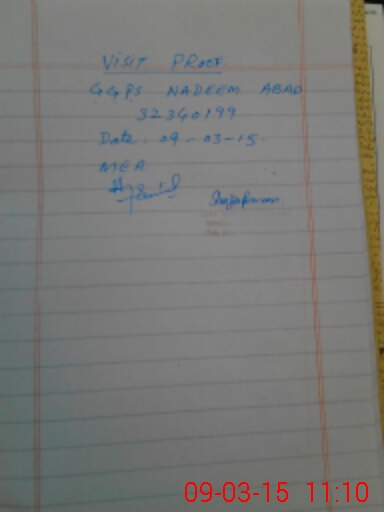 VISIT PROOF
GGPS NADEEM ABAD
32340199
Date. 09-03-15.
MEA
09-03-15 11:10